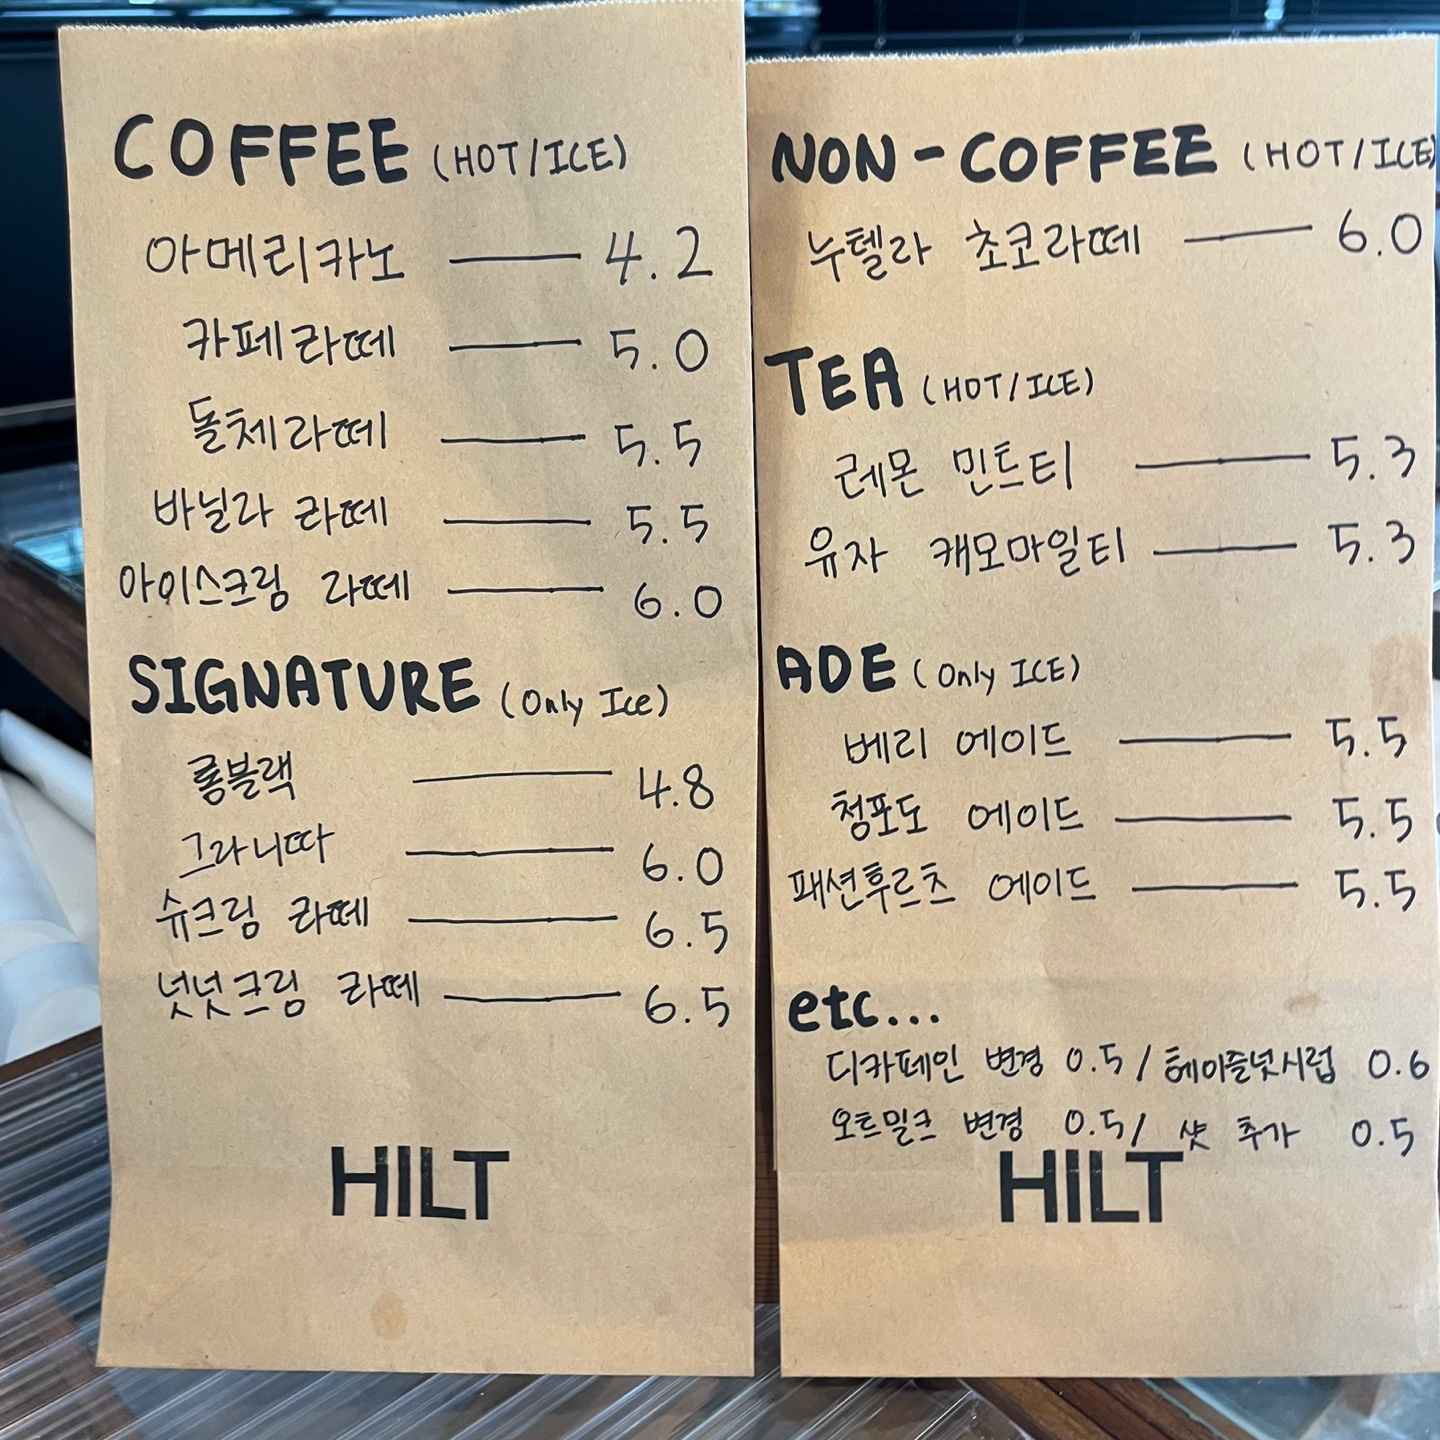 COFFEE (HOT/ICE)
아메리카노 4.2
카페라떼 5.0
돌체라떼 5.5
바닐라 라떼 5.5
아이스크림 라떼 6.0
SIGNATURE (Only Ice)
롱블랙 4.8
그라니따 6.0
슈크림 라떼 6.5
넛넛크림 라떼 6.5
HILT
NON-COFFEE (HOT/ICE)
누텔라 초코라떼 6.0
TEA (HOT/ICE)
레몬 민트티 5.3
유자 캐모마일티 5.3
ADE (Only ICE)
베리 에이드 5.5
청포도 에이드 5.5
패션후르츠 에이드 5.5
etc...
디카페인 변경 0.5 / 헤이즐넛시럽 0.6
오트밀크 변경 0.5 / 샷 추가 0.5
HILT